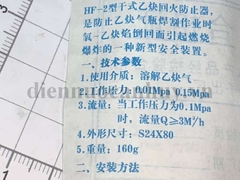 HF-2型干式乙炔回火防止器,
是防止乙炔气瓶焊割作业时
氧—乙炔焰倒回面引起燃烧
爆炸的一种新型安全装置。
一、技术参数
1.使用介质：溶解乙炔气
2.工作压力：0.01Mpa 0.15Mpa
3.流量：当工作压力为0.1Mpa
时，流量Q≥3M³/h
4.外形尺寸：S24X80
5.重量：160g
二、安装方法